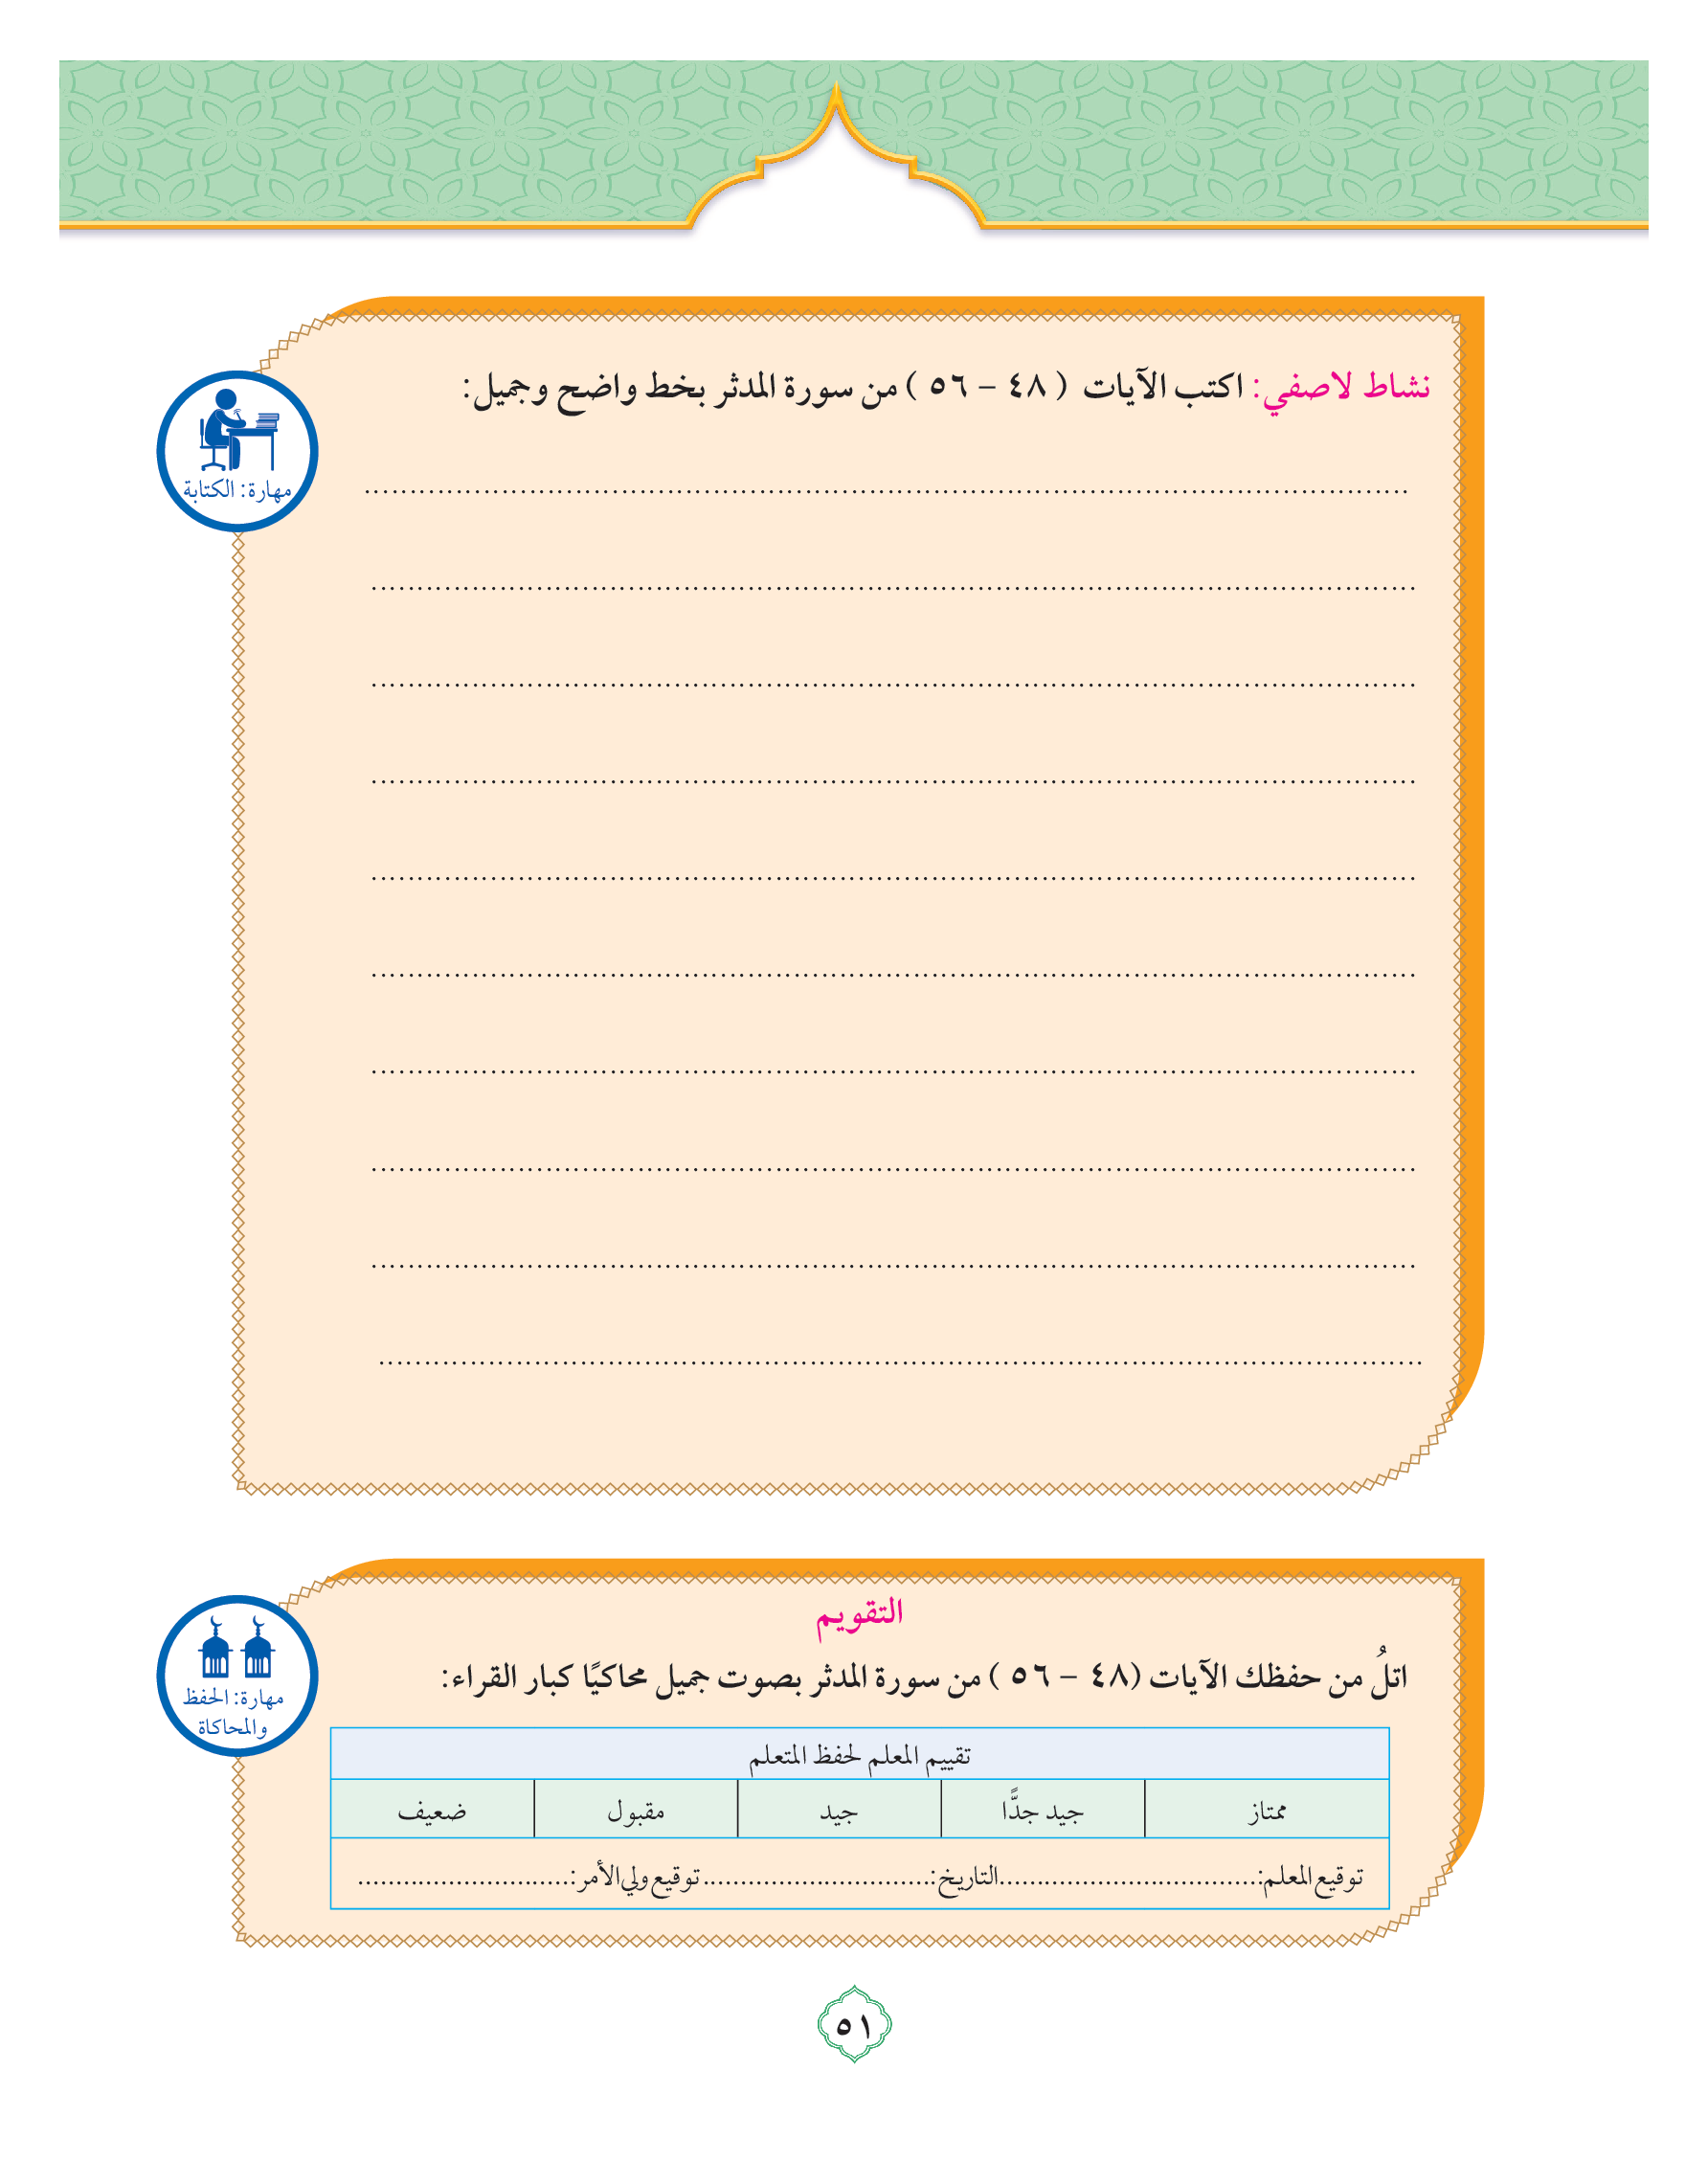 نشاط لاصفي: اكتب الآيات ( ٤٨ - ٥٦ ) من سورة المدثر بخط واضح وجميل:
مهارة: الكتابة
................................................................................
................................................................................
................................................................................
................................................................................
................................................................................
................................................................................
................................................................................
................................................................................
................................................................................
................................................................................
التقويم
اتلُ من حفظك الآيات (٤٨ - ٥٦ ) من سورة المدثر بصوت جميل محاكيًا كبار القراء:
مهارة: الحفظ
والمحاكاة
تقييم المعلم لحفظ المتعلم
ممتاز جيد جدًّا جيد مقبول ضعيف
توقيع المعلم:..................................التاريخ:..............................توقيع ولي الأمر:............................
٥١